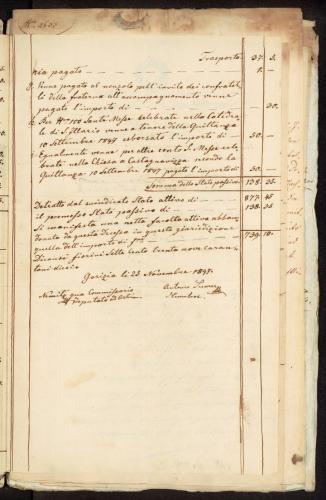 Trasporto 37. 5.
nia pagato 1. —
Venne pagato al nonzolo pell' invito dei confratel
li della fraterna all' accompagnamento venne
pagato l'importo di — . 30.
Per Nº 100 Sante Messe celebrate nella Catedra
le di S. Illario venne a tenore della Quittanza
10 Settembre 1847 esborsato l'importo di 50. —
Egualmente venne per altre cento S. Messe cele
brate nella Chiesa a Castagnavizza secondo la
Quittanza 10 Settembre 1847 pagato l'importo di 50. —
Somma dello Stato passivo 138. 35.
Detratto dal suindicato Stato attivo di 877. 45
il premesso Stato passivo di 138. 35
Si manifesta una netta facoltà abban
donata da questa Decessa in questa giurisdizione
quella dell' importo di f 739. 10.
Diconsi fiorini sette cento trenta nove caran
tani dieci
Gorizia li 23 Novembre 1847.
qua Commissario
Deputato